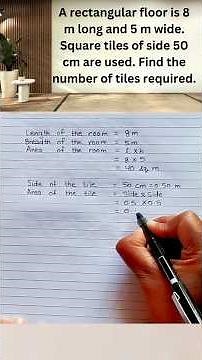 A rectangular floor is 8
m long and 5 m wide.
Square tiles of side 50
cm are used. Find the
number of tiles required.
Length of the room = 8m
Breadth of the room = 5m
Area of the room = l x b
= 8 x 5
= 40 sq. m
Side of the tile = 50 cm = 0.50 m
Area of the tile = Side x side
= 0.5 x 0.5
= 0.